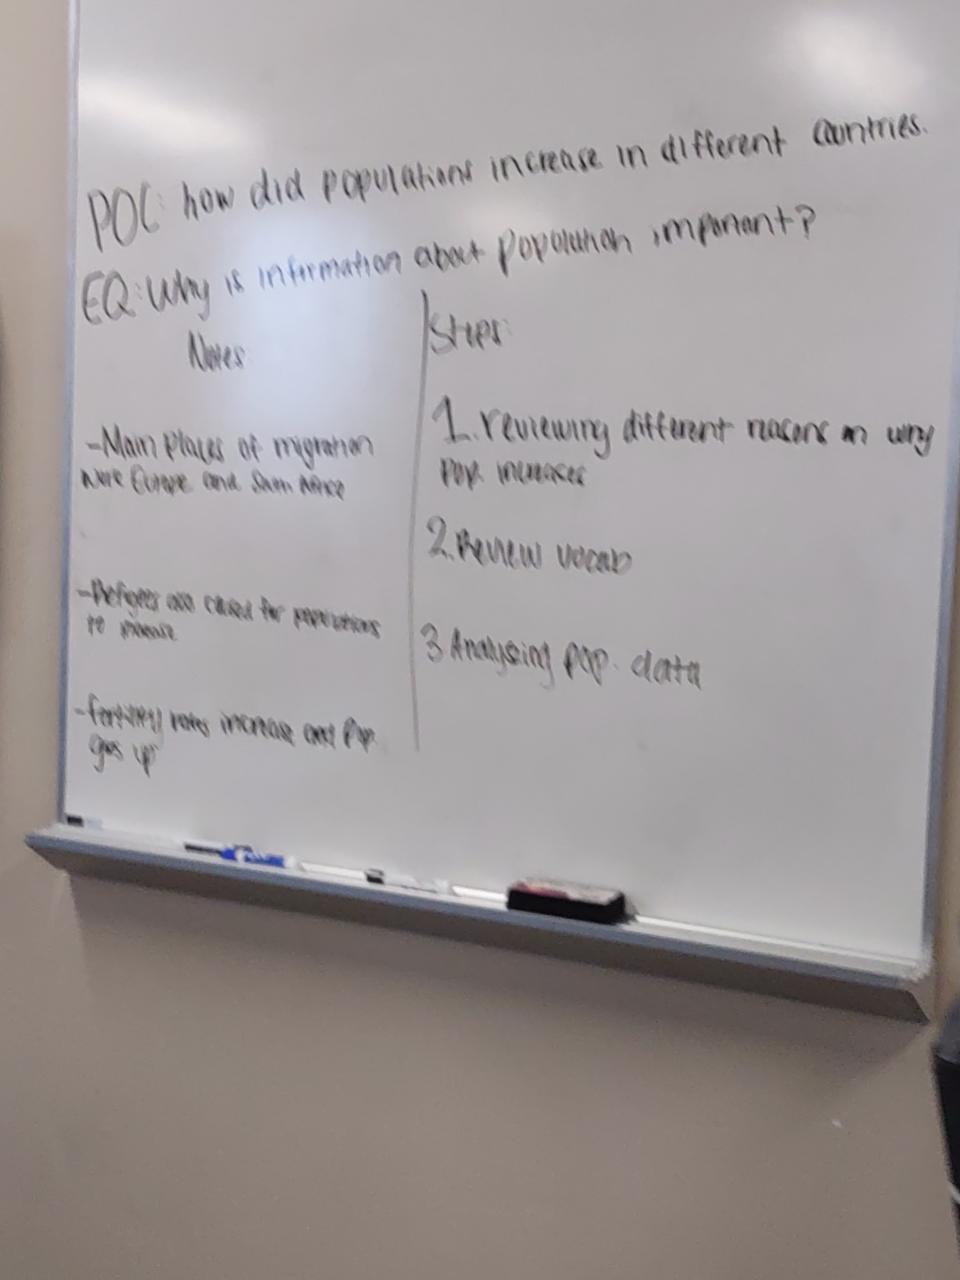 POC: how did populations increase in different countries.
EQ: Why is information about population important?
Notes
-Main Places of migration
were Europe and South Africa
-Refugees also caused for populations
to increase
-fertility rates increase and Pop.
goes up
Steps:
1. reviewing different reasons on why
pop. increases
2. Review vocab
3 Analyzing pop. data